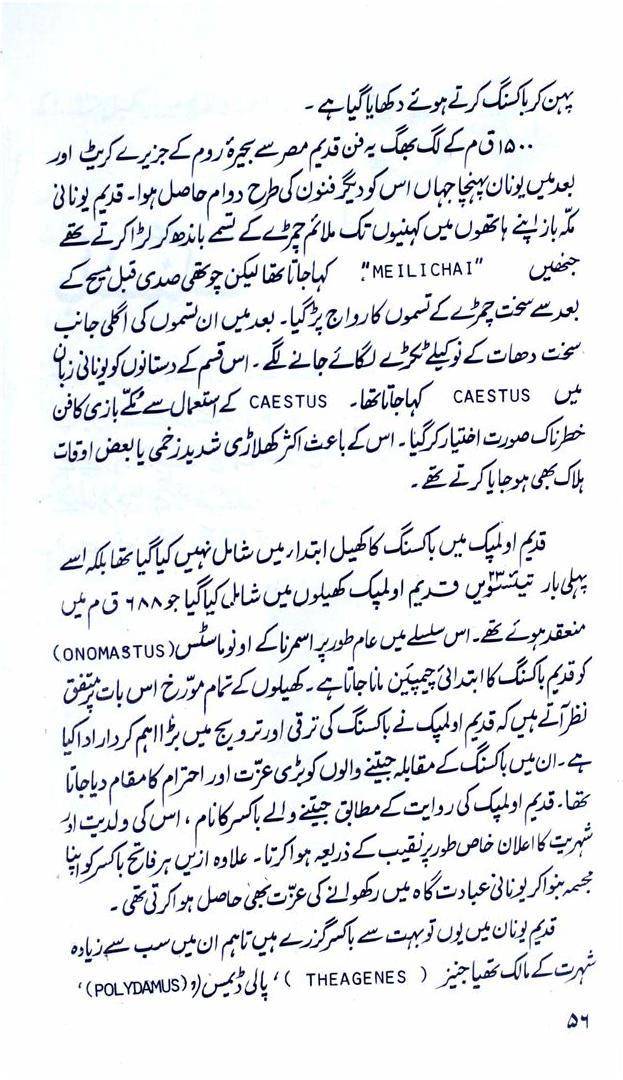 پہن کر باکسنگ کرتے ہوئے دکھایا گیا ہے۔
۱۵۰۰ ق م کے لگ بھگ یہ فن قدیم مصر سے بحیرۂ روم کے جزیرے کریٹ اور
بعد میں یونان پہنچا جہاں اس کو دیگر فنون کی طرح دوام حاصل ہوا۔ قدیم یونانی
مکّہ باز اپنے ہاتھوں میں کہنیوں تک ملائم چمڑے کے تسمے باندھ کر لڑا کرتے تھے
جنھیں "MEILICHAI" کہا جاتا تھا لیکن چوتھی صدی قبل مسیح کے
بعد سے سخت چمڑے کے تسموں کا رواج پڑ گیا۔ بعد میں ان تسموں کی اگلی جانب
سخت دھات کے نوکیلے ٹکڑے لگائے جانے لگے۔ اس قسم کے دستانوں کو یونانی زبان
میں CAESTUS کہا جاتا تھا۔ CAESTUS کے استعمال سے مُکّے بازی کا فن
خطرناک صورت اختیار کر گیا۔ اس کے باعث اکثر کھلاڑی شدید زخمی یا بعض اوقات
ہلاک بھی ہو جایا کرتے تھے۔
قدیم اولمپک میں باکسنگ کا کھیل ابتداء میں شامل نہیں کیا گیا تھا بلکہ اسے
پہلی بار تیئسویں ۲۳ قدیم اولمپک کھیلوں میں شامل کیا گیا جو ۶۸۸ ق م میں
منعقد ہوئے تھے۔ اس سلسلے میں عام طور پر اسمرنا کے اونوماسٹس (ONOMASTUS)
کو قدیم باکسنگ کا ابتدائی چیمپئن مانا جاتا ہے۔ کھیلوں کے تمام مورّخ اس بات پر متفق
نظر آتے ہیں کہ قدیم اولمپک نے باکسنگ کی ترقی اور ترویج میں بڑا اہم کردار ادا کیا
ہے۔ ان میں باکسنگ کے مقابلہ جیتنے والوں کو بڑی عزّت اور احترام کا مقام دیا جاتا
تھا۔ قدیم اولمپک کی روایت کے مطابق جیتنے والے باکسر کا نام، اس کی ولدیت اور
شہریت کا اعلان خاص طور پر نقیب کے ذریعہ ہوا کرتا۔ علاوہ ازیں ہر فاتح باکسر کو اپنا
مجسمہ بنوا کر یونانی عبادت گاہ میں رکھوانے کی عزّت بھی حاصل ہوا کرتی تھی۔
قدیم یونان میں یوں تو بہت سے باکسر گزرے ہیں تاہم ان میں سب سے زیادہ
شہرت کے مالک تھیاجنیز (THEAGENES)، پالی ڈیمس (POLYDAMUS)،
۵۶